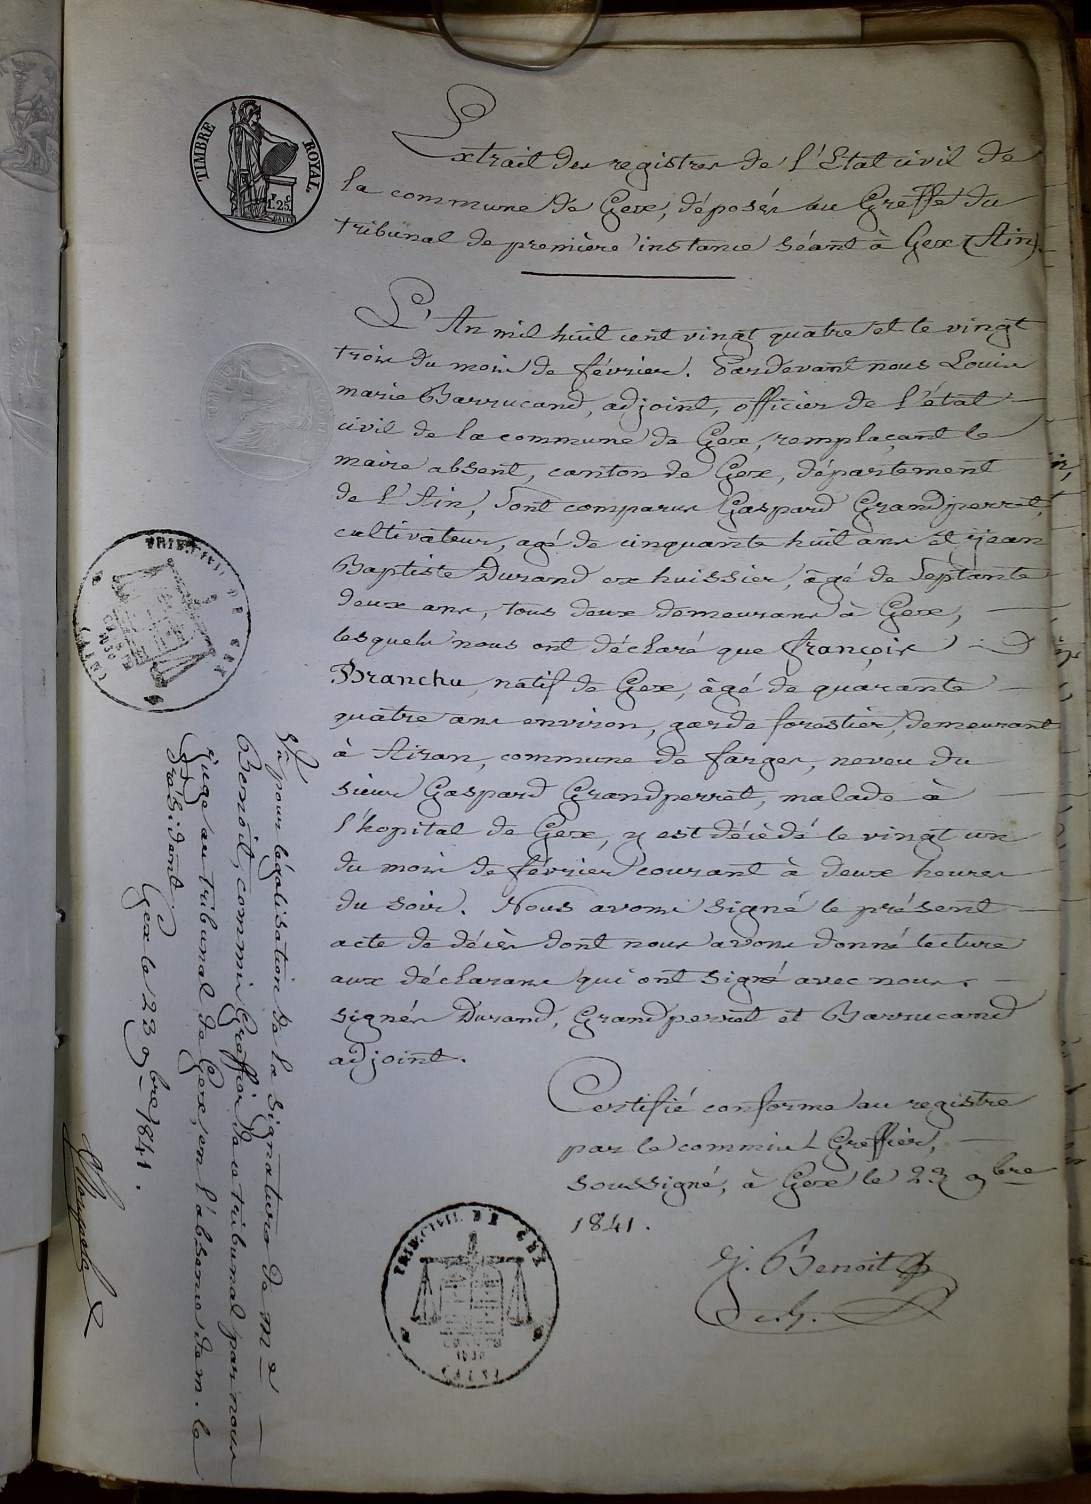 TIMBRE ROYAL
1F.25C
Extrait des registres de l'Etat civil de
la commune de Gex, déposés au Greffe du
tribunal de première instance séant à Gex (Ain).
L'An mil huit cent vingt quatre et le vingt
trois du mois de février. Pardevant nous Louis
marie Barrucand, adjoint, officier de l'état
civil de la commune de Gex, remplaçant le
maire absent, canton de Gex, département
de l'Ain, sont comparus Gaspard Grandperret,
cultivateur, agé de cinquante huit ans et jean
Baptiste Durand ex huissier, âgé de septante
deux ans, tous deux demeurans à Gex,
lesquels nous ont déclaré que françois
Branchu, natif de Gex, âgé de quarante
quatre ans environ, garde forestier, demeurant
à Airan, commune de farges, neveu du
sieur Gaspard Grandperret, malade à
l'hopital de Gex, y est décédé le vingt un
du mois de février courant à deux heures
du soir. Nous avons signé le présent
acte de décès dont nous avons donné lecture
aux déclarans qui ont signé avec nous.
signés Durand, Grandperret et Barrucand
adjoint.
Certifié conforme au registre
par le commis Greffier,
soussigné, à Gex le 23 9bre
1841.
J. Benoit
c.g.
TRIB. CIVIL DE GEX
(AIN)
Vu pour légalisation de la signature de Me
Benoit, commis Greffier de ce tribunal par nous
juge au tribunal de Gex, en l'absence de m. le
Président,
Gex le 23 9bre 1841.
TRIB. CIVIL DE GEX
1830
(AIN)